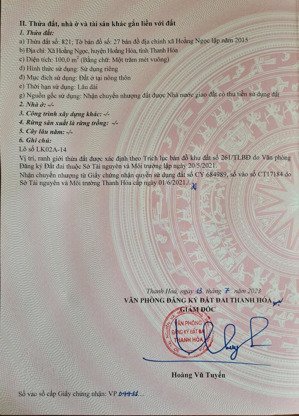 II. Thửa đất, nhà ở và tài sản khác gắn liền với đất
1. Thửa đất:
a) Thửa đất số: 821; Tờ bản đồ số: 27 bản đồ địa chính xã Hoằng Ngọc lập năm 2015
b) Địa chỉ: Xã Hoằng Ngọc, huyện Hoằng Hóa, tỉnh Thanh Hóa
c) Diện tích: 100,0 m² (Bằng chữ: Một trăm mét vuông)
d) Hình thức sử dụng: Sử dụng riêng
đ) Mục đích sử dụng: Đất ở tại nông thôn
e) Thời hạn sử dụng: Lâu dài
g) Nguồn gốc sử dụng: Nhận chuyển nhượng đất được Nhà nước giao đất có thu tiền sử dụng đất
2. Nhà ở: -/-
3. Công trình xây dựng khác: -/-
4. Rừng sản xuất là rừng trồng: -/-
5. Cây lâu năm: -/-
6. Ghi chú:
Lô số LK02A-14
Vị trí, ranh giới thửa đất được xác định theo Trích lục bản đồ khu đất số 261/TLBĐ do Văn phòng
Đăng ký Đất đai thuộc Sở Tài nguyên và Môi trường lập ngày 20/5/2021.
Nhận chuyển nhượng từ Giấy chứng nhận quyền sử dụng đất số CY 684989, số vào sổ CT17184 do
Sở Tài nguyên và Môi trường Thanh Hóa cấp ngày 01/6/2021./.
Thanh Hóa, ngày 15 tháng 7 năm 2021
VĂN PHÒNG ĐĂNG KÝ ĐẤT ĐAI THANH HÓA
GIÁM ĐỐC
VĂN PHÒNG
ĐĂNG KÝ ĐẤT ĐAI
THANH HÓA
Hoàng Vũ Tuyển
Số vào sổ cấp Giấy chứng nhận: VP